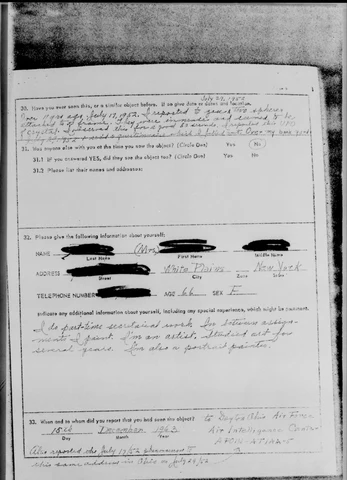 July 29, 1952
30. Have you ever seen this, or a similar object before. If so give date or dates and location.
Over a year ago, July 19, 1952, I reported to you two spheres
attached to a frame. They were and seemed to be
of crystal. I observed this for a good 30 seconds. I reported this
31. Was anyone else with you at the time you saw the object? (Circle One) Yes No
31.1 If you answered YES, did they see the object too? (Circle One) Yes No
31.2 Please list their names and addresses:
32. Please give the following information about yourself:
NAME (Mrs)
Last Name First Name Middle Name
ADDRESS White Plains New York
Street City Zone State
TELEPHONE NUMBER AGE 66 SEX F
Indicate any additional information about yourself, including any special experience, which might be pertinent.
I do part-time secretarial work. In between assign-
ments I paint. I'm an artist, studied art for
several years. I'm also a portrait painter.
33. When and to whom did you report that you had seen the object? to Dayton Ohio Air Force
15th December 1953 Air Intelligence Center
Day Month Year ATCIN-ATIAE-5
Also reported the July 19/52 phenomena to
this same address in Ohio on July 29/52